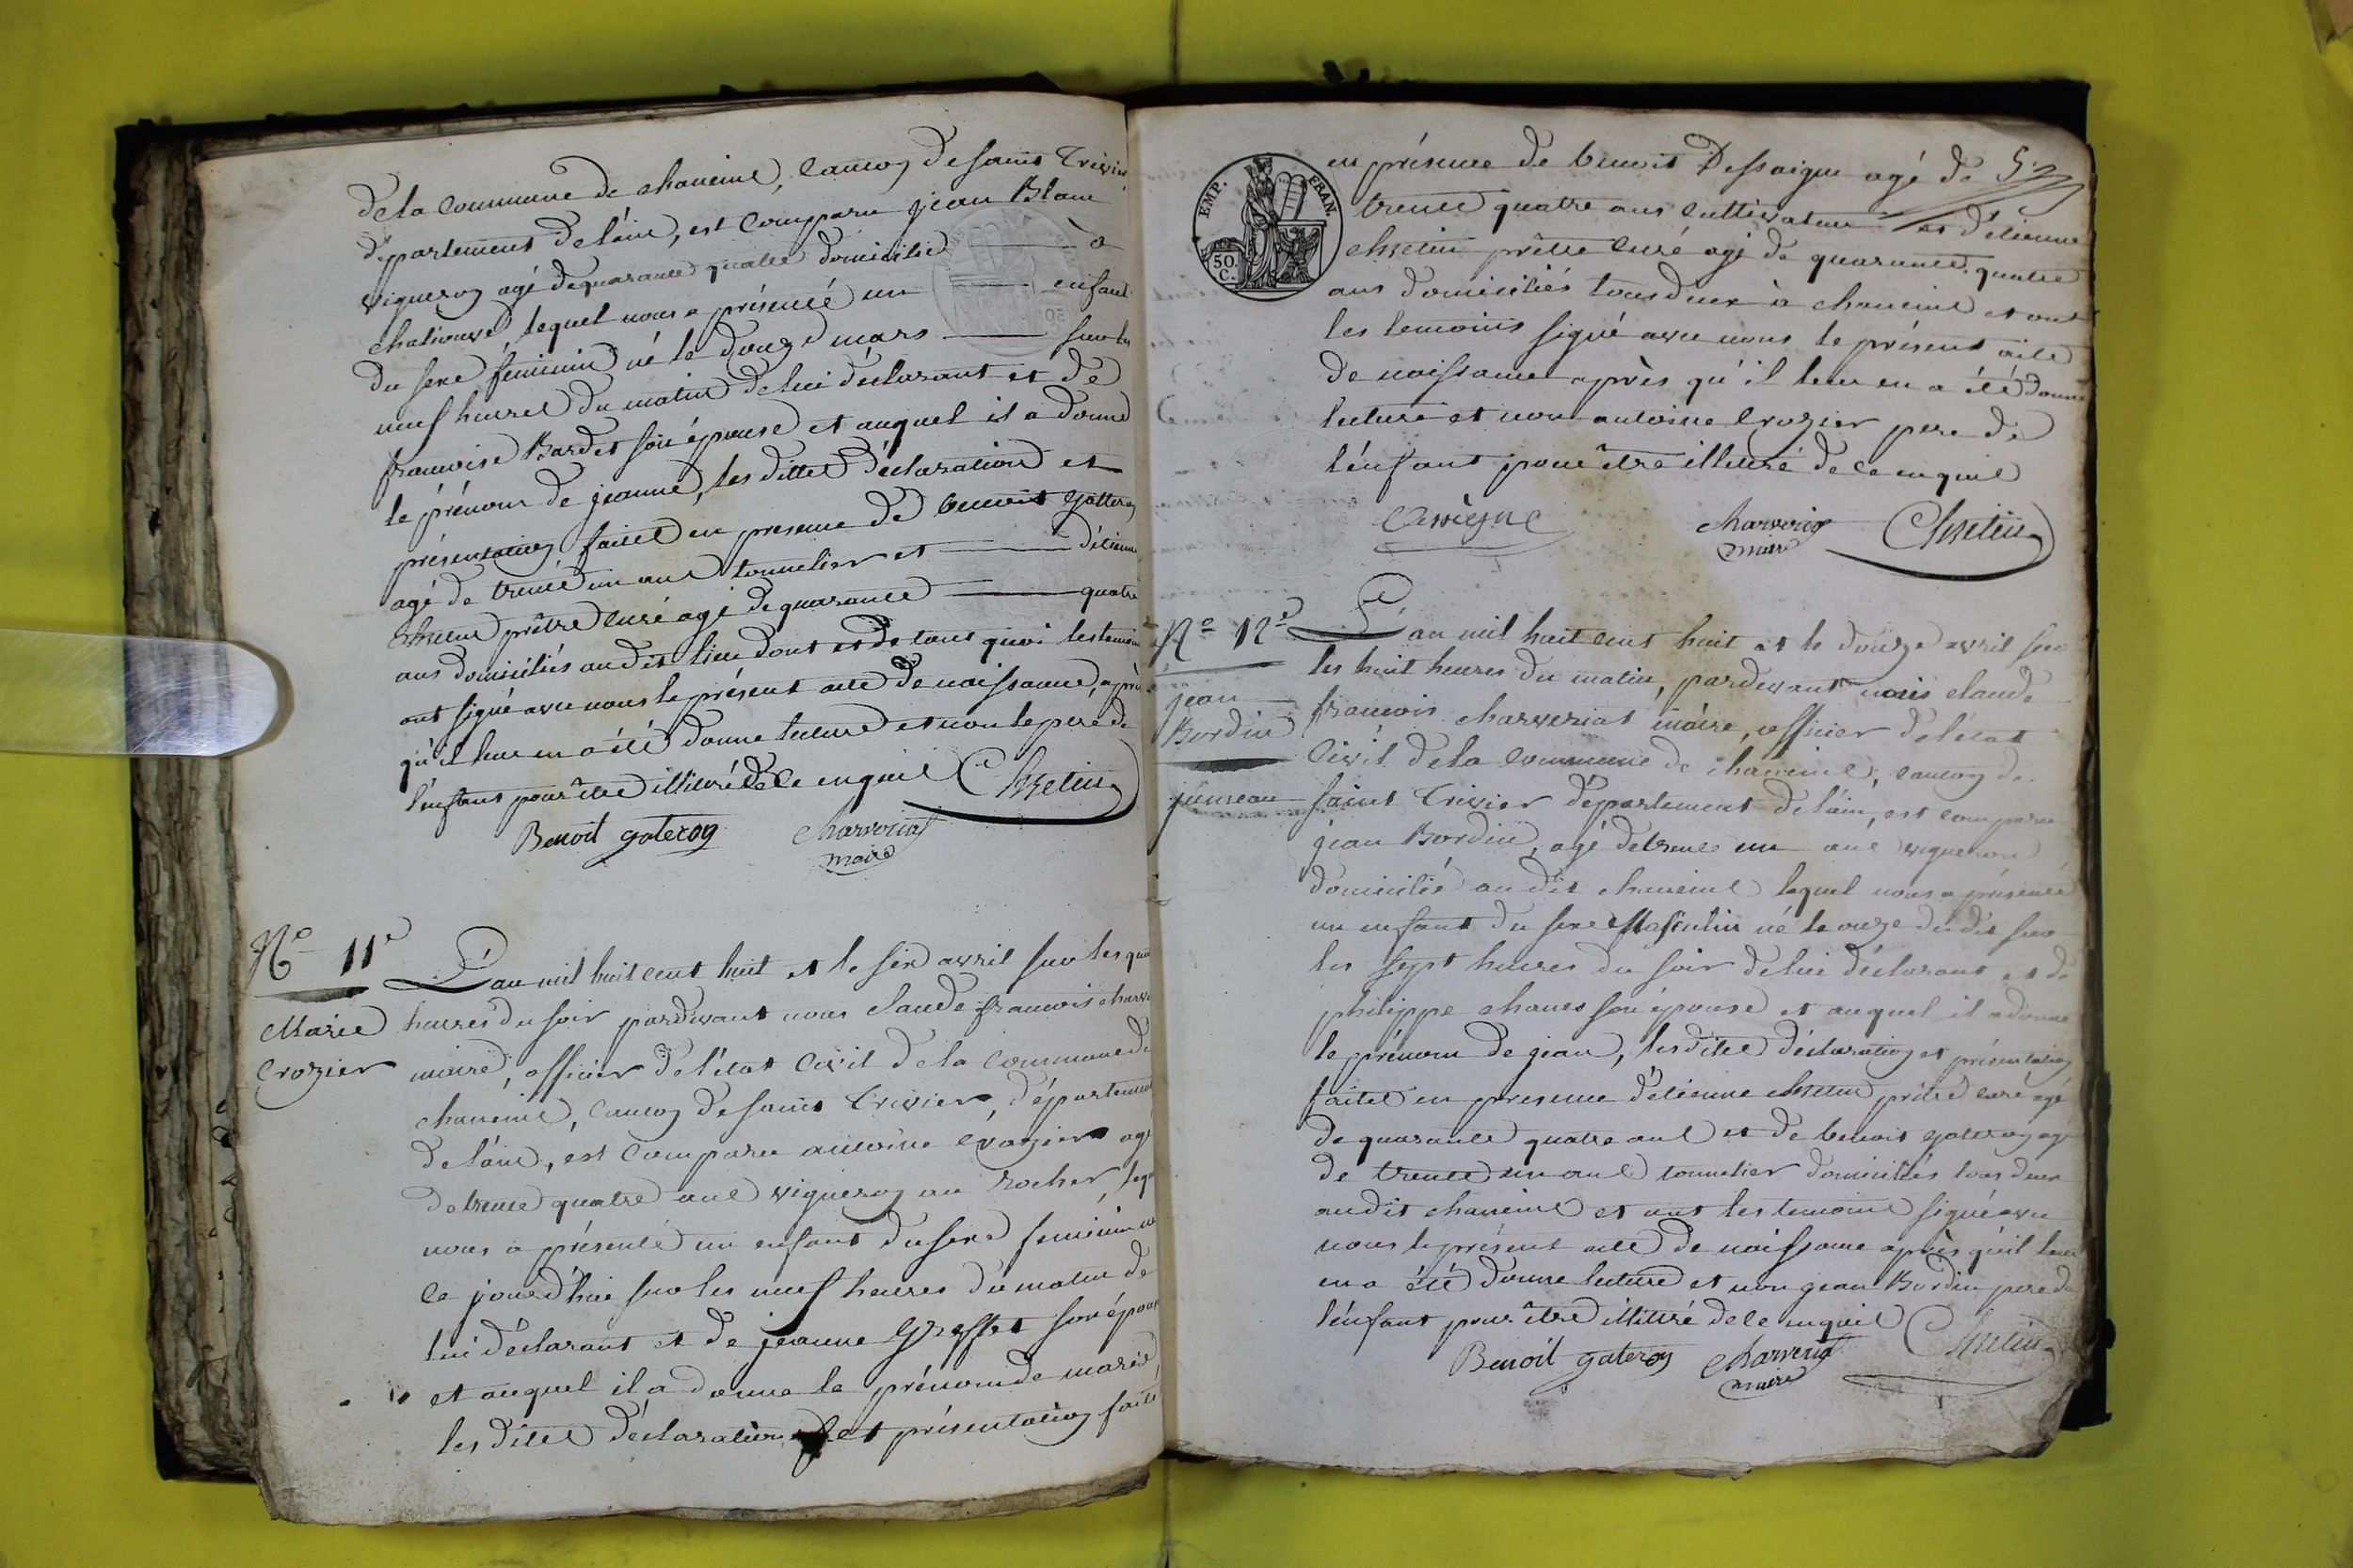 de la commune de chaneins, canton de saint Trivier,
département de lain, est comparu jean Blanc
vigneron agé de quarante quatre domicilié à
lequel nous a présenté un enfant
du sexe féminin né le douze mars sur les
neuf heures du matin de lui déclarant et de
francoise Bardet son épouse et auquel il a donné
le prénom de jeanne, les dittes déclaration et
présentation faites en presence de benoit gatteron
agé de trente un ans tonnelier et d'étienne
prêtre curé agé de quarante quatre
ans domiciliés au dit lieu dont et de tout quoi les temoins
ont signé avec nous le présent acte de naissance, après
qu'il leur en a été donné lecture et non le pere de
l'enfant pour être illitéré de ce enquis
Benoit gateron charveriat
maire
N° 11e L'an mil huit cent huit et le six avril sur les
Marie heures du soir pardevant nous claude francois
Crozier maire, officier de l'état civil de la commune de
chaneins, canton de saint trivier, département
de lain, est comparu antoine crozier agé
de trente quatre ans vigneron au rocher,
nous a présenté un enfant du sexe feminin né
ce jourd'hui sur les neuf heures du matin de
lui déclarant et de jeanne son épouse
et auquel il a donné le prénom de marie,
les dites déclaration et présentation faites
EMP. FRAN.
50 C.
en présence de benoit Dessaigne agé de
trente quatre ans cultivateur et d'étienne
prêtre curé agé de quarante quatre
ans domiciliés tous deux à chaneins et ont
les temoins signé avec nous le présent acte
de naissance après qu'il leur en a été donné
lecture et non antoine Crozier pere de
l'enfant pour être illitéré de ce enquis
charveriat
maire
N° 12e L'an mil huit cent huit et le douze avril sur
les huit heures du matin, pardevant nous claude
jean francois charveriat maire, officier de l'état
Bordin civil de la commune de chaneins, canton de
jumeau saint trivier département de lain, est comparu
jean Bordin, agé de trente un ans vigneron
domicilié au dit chaneins lequel nous a présenté
un enfant du sexe Masculin né le onze du dit sur
les sept heures du soir de lui déclarant et de
philippe son épouse et auquel il a donné
le prénom de jean, les dites déclaration et présentation
faites en presence d'étienne prêtre curé agé
de quarante quatre ans et de benoit gatteron agé
de trente un ans tonnelier domiciliés tous deux
au dit chaneins et ont les temoins signé avec
nous le présent acte de naissance après qu'il leur
en a été donné lecture et non jean Bordin pere de
l'enfant pour être illitéré de ce enquis
Benoit gateron charveriat
maire